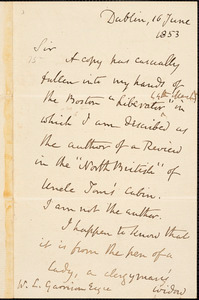 Dublin, 16 June
1853
Sir
A copy has casually
fallen into my hands of
the Boston "Liberator" in
which I am described as
the author of a Review
in the "North British" of
Uncle Tom's Cabin.
I am not the author.
I happen to know that
it is from the pen of a
Lady, a clergyman's
W. L. Garrison Esqre widow